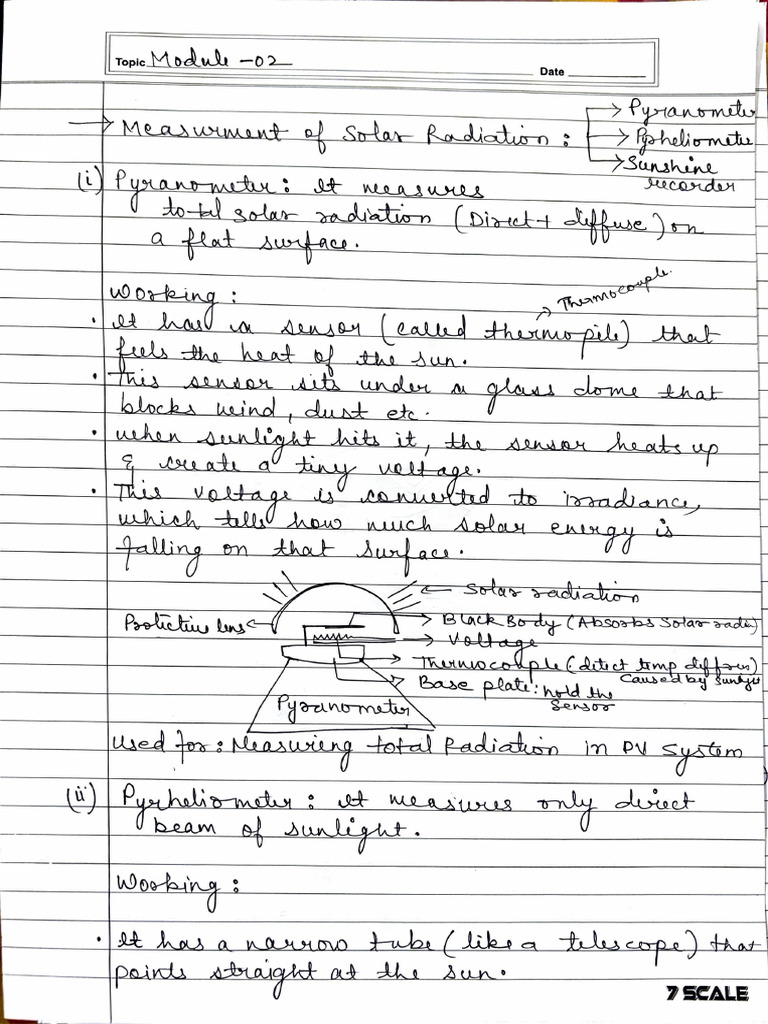 Topic Module -02
Date
→ Measurment of Solar Radiation :
→ Pyranometer
→ Pyrheliometer
→ Sunshine
recorder
(i) Pyranometer : It measures
total solar radiation (Direct + diffuse) on
a flat surface.
Working :
→ Thermocouple.
• It has a sensor (called thermopile) that
feels the heat of the sun.
• This sensor sits under a glass dome that
blocks wind, dust etc.
• when sunlight hits it, the sensor heats up
& create a tiny voltage.
• This voltage is converted to irradiance,
which tells how much solar energy is
falling on that surface.
← Solar radiation
Protective lens ←
→ Black Body (Absorbs Solar radi)
→ Voltage
→ Thermocouple (detect temp
Caused by sunlight
→ Base plate : hold the
Sensor
Pyranometer
Used for : Measuring total Radiation in PV System
(ii) Pyrheliometer : It measures only direct
beam of sunlight.
Working :
• It has a narrow tube (like a telescope) that
points straight at the sun.
7 SCALE